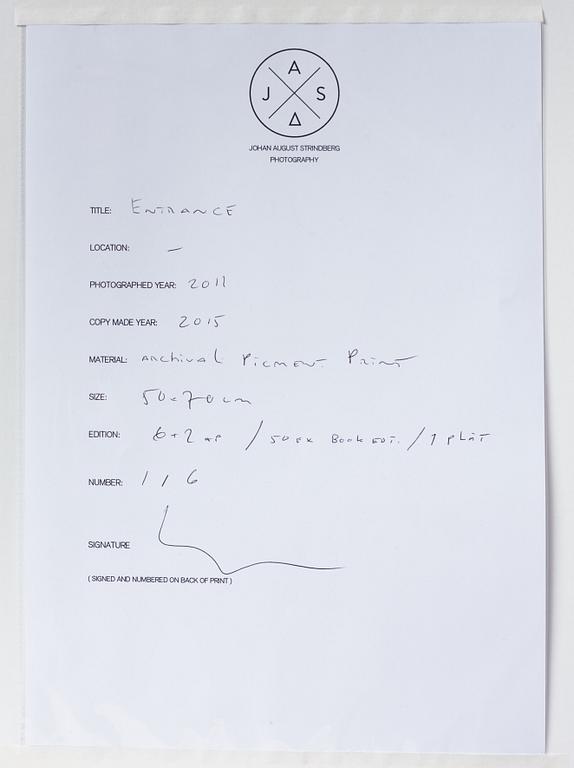 A
J S
Δ
JOHAN AUGUST STRINDBERG
PHOTOGRAPHY
TITLE: ENTRANCE
LOCATION: –
PHOTOGRAPHED YEAR: 2011
COPY MADE YEAR: 2015
MATERIAL: ARCHIVAL PICMENT PRINT
SIZE: 50x70 cm
EDITION: 6+2 AP / 50 EX BOOK EDT. / 1 PLÅT
NUMBER: 1/6
SIGNATURE
( SIGNED AND NUMBERED ON BACK OF PRINT )